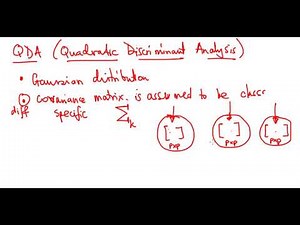 QDA (Quadratic Discriminant Analysis)
• Gaussian distribution
• covariance matrix is assumed to be class
diff specific Σk [ ] [ ] [ ]
pxp pxp pxp